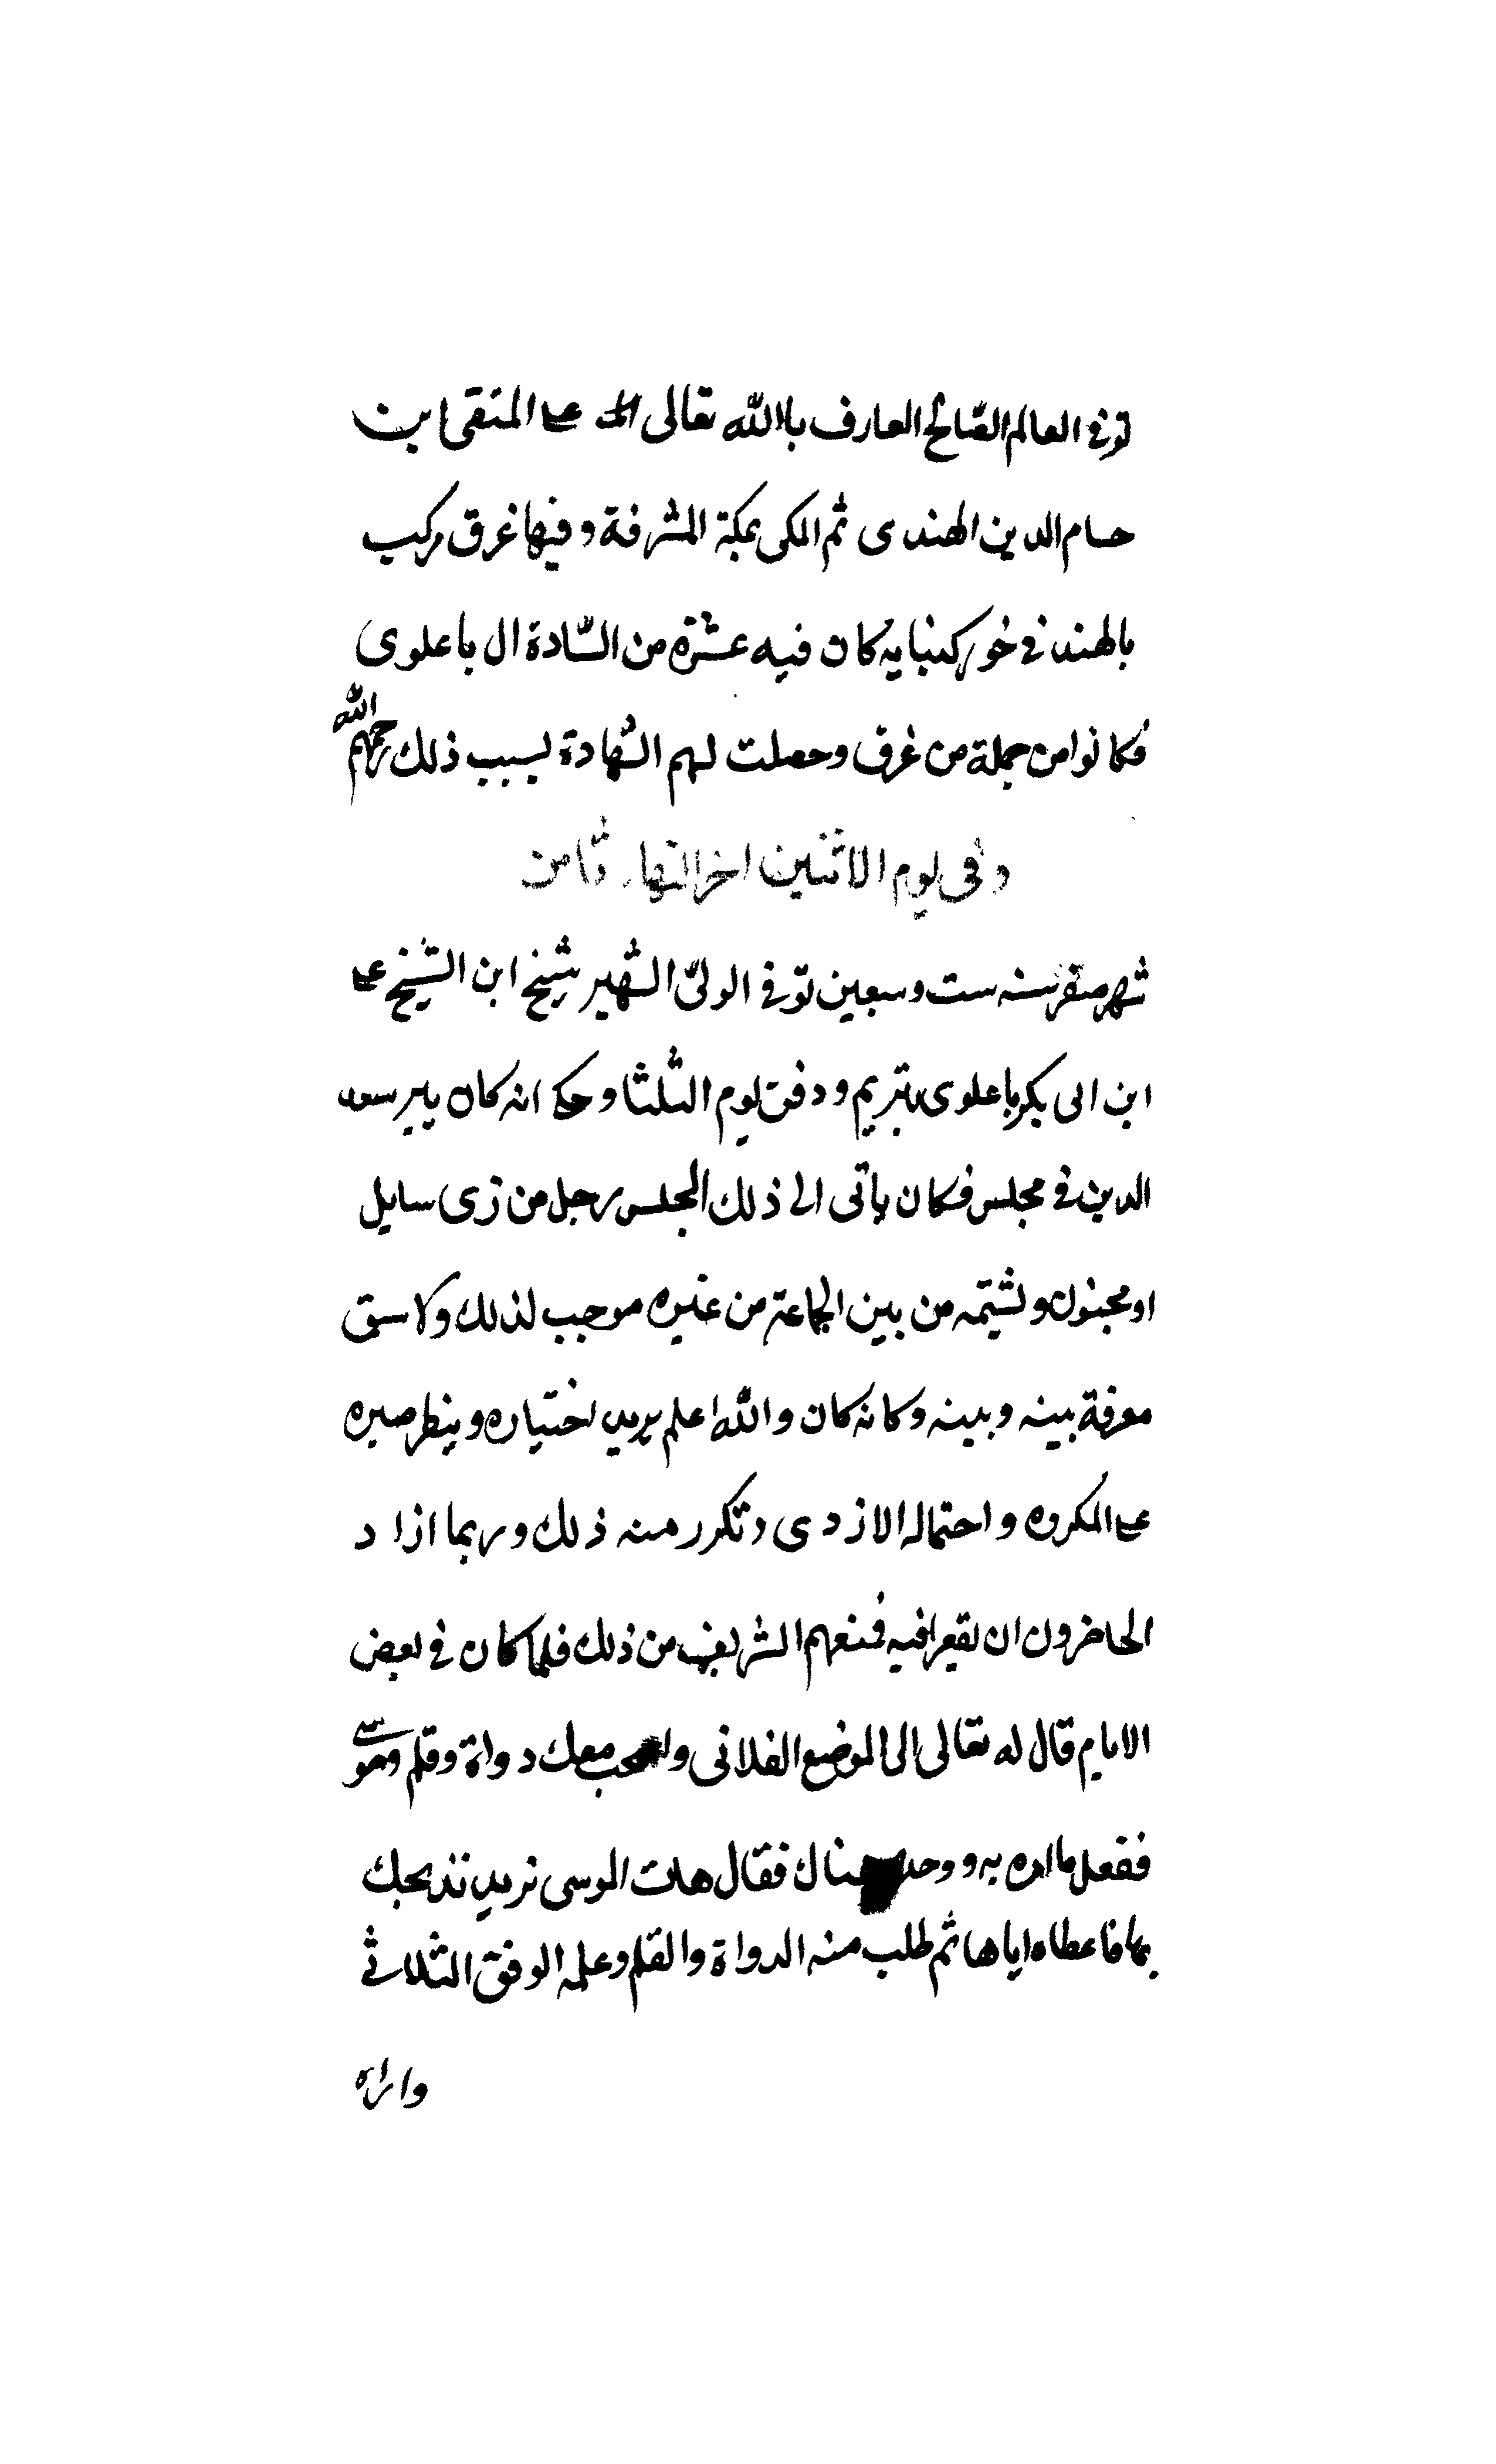 توفي العالم الصّالح العارف باالله تعالى على المتقى ابن
حسام الدين الهندى ثم المكى بمكة المشرفة وفيها غرق مركب
بالهند في خور كنباية كان فيه عشرة من السّادة ال باعلوى
فكانوا من جملة من غرق وحصلت لهم الشهادة بسبب ذلك رحمهم الله
وفى يوم الاثنين اخر النهار ثامن
شهر صفر سنه ست وسبعين توفي الولىّ الشهير شيخ ابن الشيخ على
ابن ابى بكر باعلوى بتريم ودفن يوم الثلثا وحكى انه كان
الدين في مجلس فكان ياتى الى ذلك المجلس رجل من زى سايل
او مجنون ويشتمه من بين الجماعة من غيره موجب لذلك ولا سبق
معرفة بينه وبينه وكانه كان والله اعلم يريد اختياره وينظر صبره
على المكروه واحتماله الازدى وتكرر منه ذلك وربما ازاد
الحاضرون ان يقعوا فيه فمنعهم الشريف من ذلك فلما كان في بعض
الايام قال له تعالى الى الموضع الفلانى واصحب معك دواة وقلم وموسى
ففعل ما امره به ووجده هناك فقال هات الموسى نريد نذبحك
بها فاعطاه اياها ثم طلب منه الدواة والقلم وعلمه الوفق الثلاثي
واراه